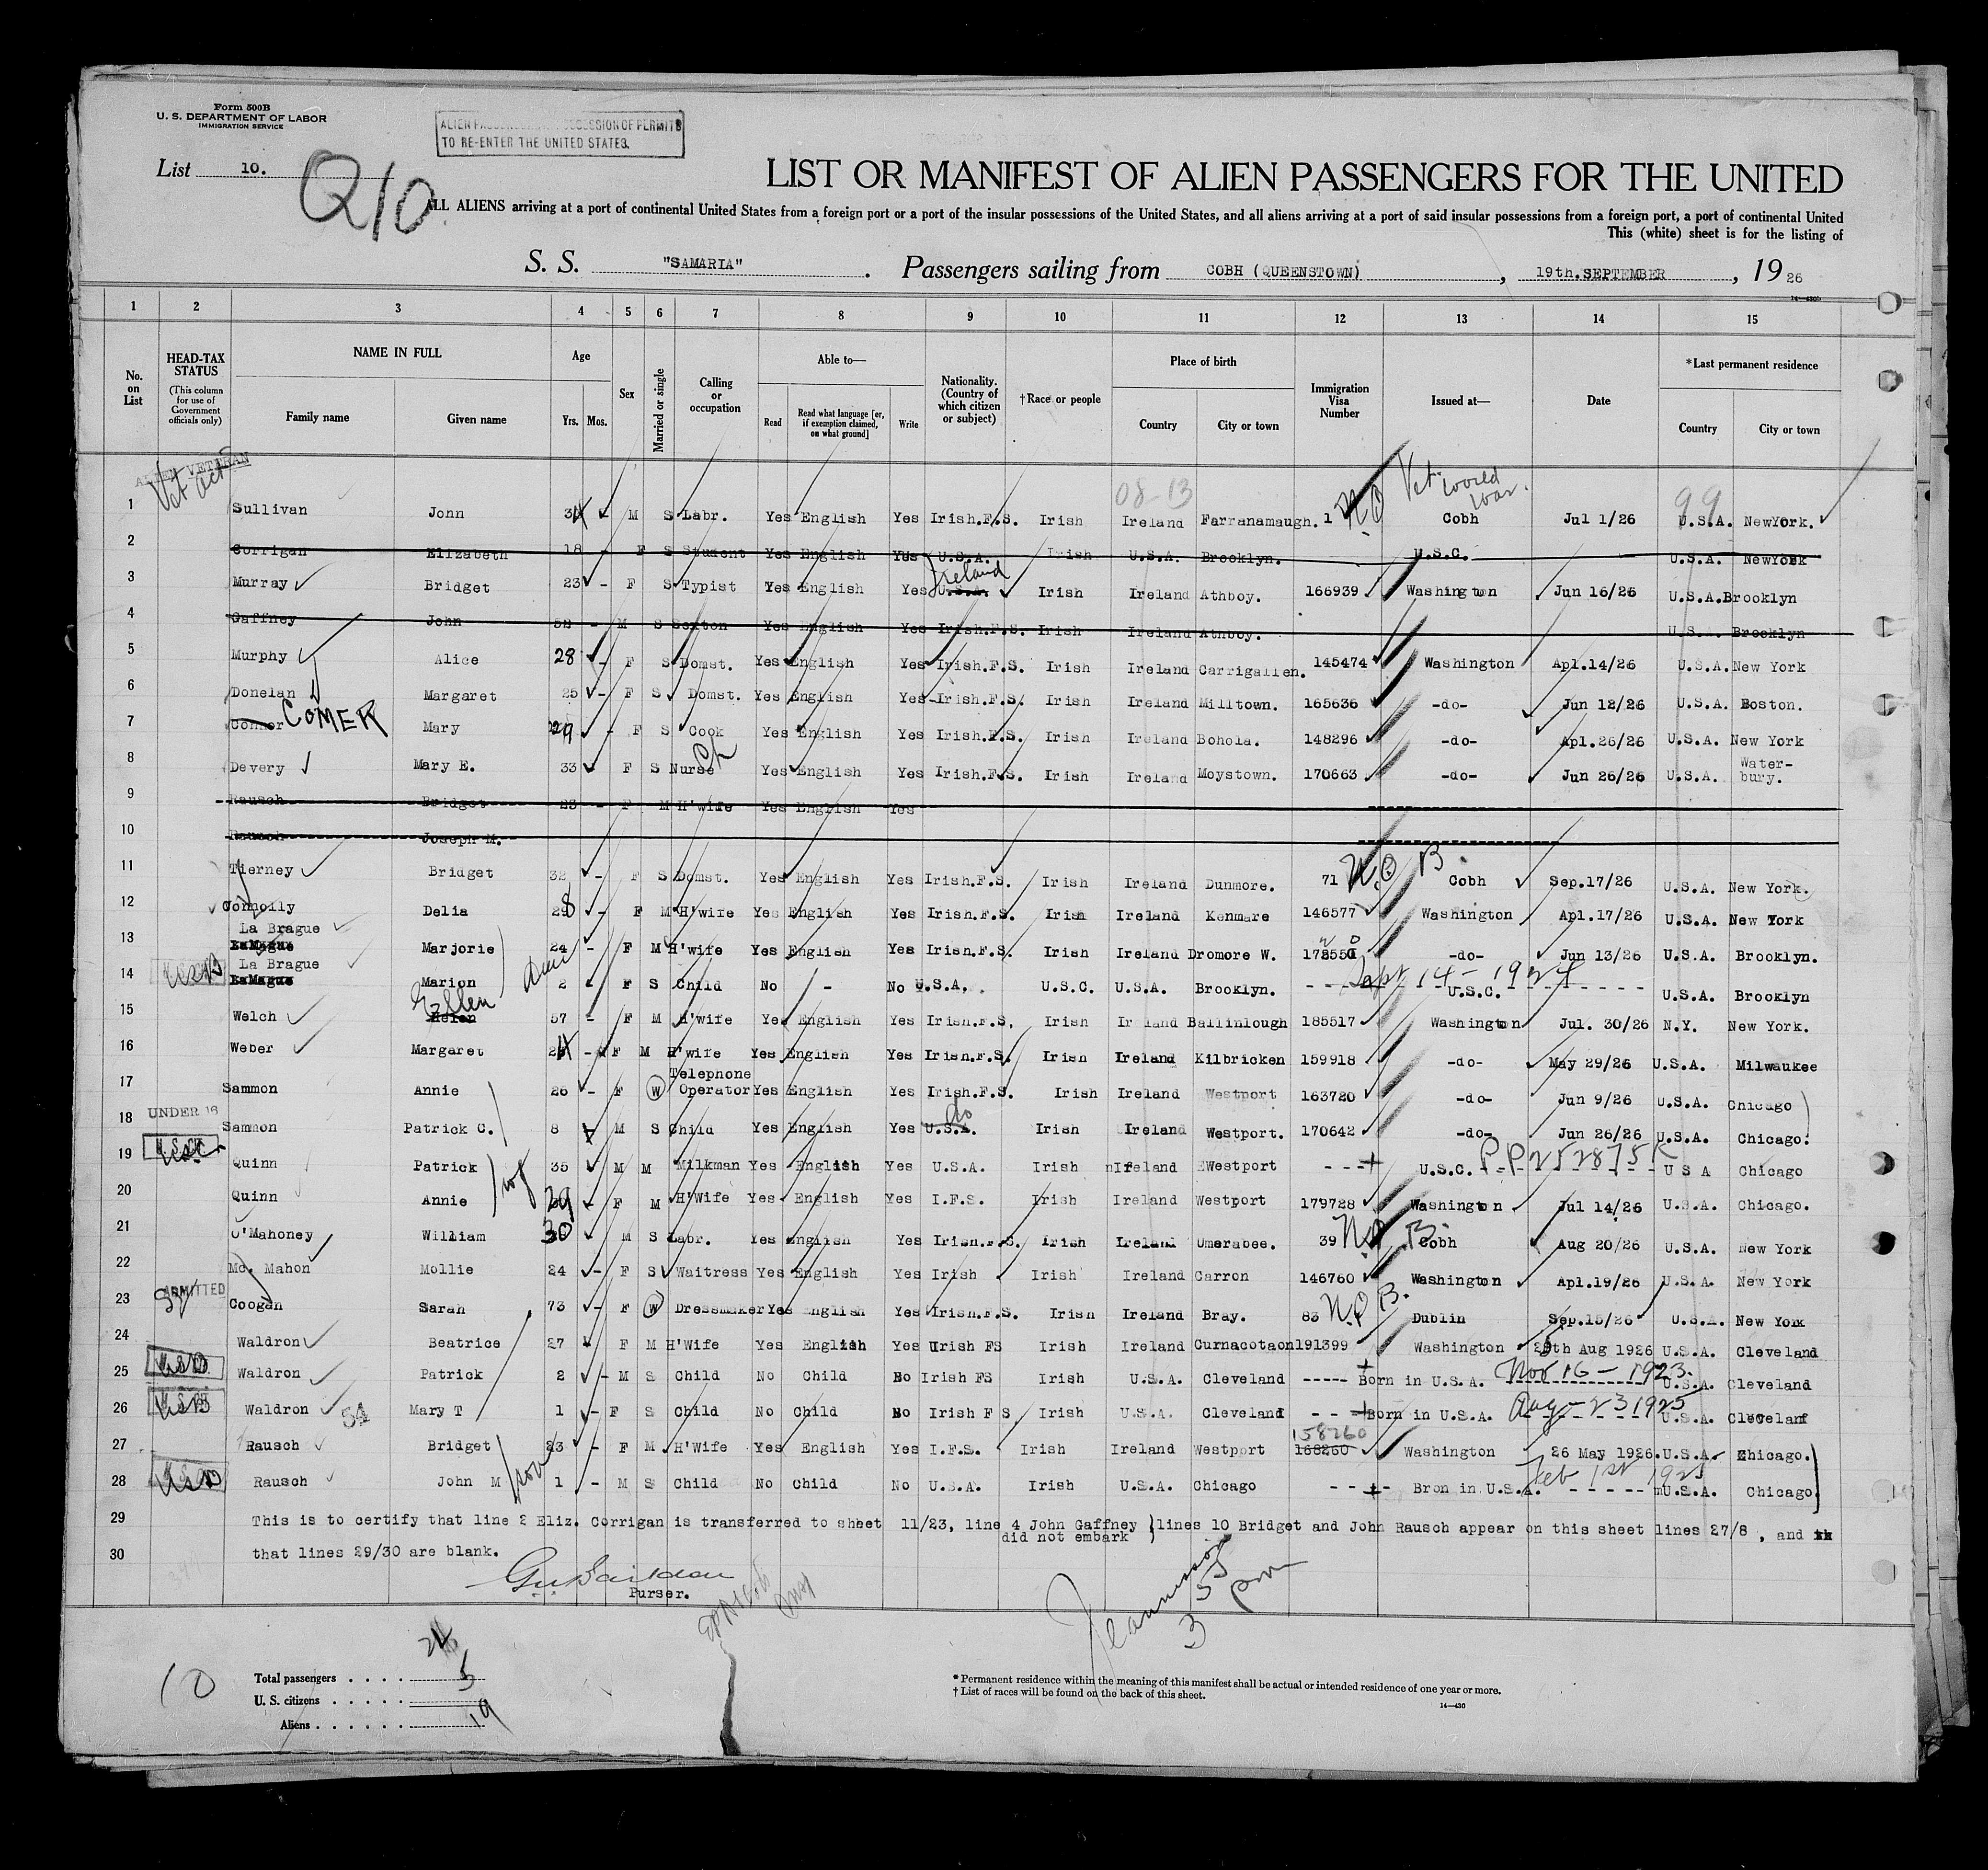 Form 500B
U. S. DEPARTMENT OF LABOR
IMMIGRATION SERVICE
ALIEN PASSENGERS POSSESSION OF PERMITS
TO RE-ENTER THE UNITED STATES.
List 10.
Q10
LIST OR MANIFEST OF ALIEN PASSENGERS FOR THE UNITED
ALL ALIENS arriving at a port of continental United States from a foreign port or a port of the insular possessions of the United States, and all aliens arriving at a port of said insular possessions from a foreign port, a port of continental United
This (white) sheet is for the listing of
S. S. "SAMARIA" . Passengers sailing from COBH (QUEENSTOWN) , 19th. SEPTEMBER , 19 26
14—430b
1 2 3 4 5 6 7 8 9 10 11 12 13 14 15
No. on List
HEAD-TAX STATUS (This column for use of Government officials only)
NAME IN FULL Family name Given name
Age Yrs. Mos.
Sex
Married or single
Calling or occupation
Able to— Read Read what language [or, if exemption claimed, on what ground] Write
Nationality. (Country of which citizen or subject)
†Race or people
Place of birth Country City or town
Immigration Visa Number
Issued at—
Date
*Last permanent residence Country City or town
ALIEN VETERAN
Vet act
08-13 Vet. World War. 99
1 Sullivan John 34 M S Labr. Yes English Yes Irish.F.S. Irish Ireland Farranamaugh. 1 N.Q Cobh Jul 1/26 U.S.A. NewYork.
2 Corrigan Elizabeth 18 - F S Student Yes English Yes U.S.A. Irish U.S.A. Brooklyn. U.S.C. U.S.A. NewYork
3 Murray Bridget 23 - F S Typist Yes English Yes U.S.A. Ireland Irish Ireland Athboy. 166939 Washington Jun 16/26 U.S.A. Brooklyn
4 Gaffney John 52 - M S Sexton Yes English Yes Irish.F.S. Irish Ireland Athboy. U.S.A. Brooklyn
5 Murphy Alice 28 - F S Domst. Yes English Yes Irish.F.S. Irish Ireland Carrigallen. 145474 Washington Apl.14/26 U.S.A. New York
6 Donelan Margaret 25 - F S Domst. Yes English Yes Irish.F.S. Irish Ireland Milltown. 165636 -do- Jun 12/26 U.S.A. Boston.
7 Connor COMER Mary 29 - F S Cook Yes English Yes Irish.F.S. Irish Ireland Bohola. 148296 -do- Apl.26/26 U.S.A. New York
8 Devery Mary E. 33 F S Nurse Yes English Yes Irish.F.S. Irish Ireland Moystown. 170663 -do- Jun 26/26 U.S.A. Water-bury.
9 Rausch Bridget 23 - F M H'wife Yes English Yes
10 Rausch Joseph M.
11 Tierney Bridget 32 - F S Domst. Yes English Yes Irish.F.S. Irish Ireland Dunmore. 71 N.Q B. Cobh Sep.17/26 U.S.A. New York.
12 Connolly Delia 28 - F M H'wife Yes English Yes Irish.F.S. Irish Ireland Kenmare 146577 Washington Apl.17/26 U.S.A. New York
La Brague
13 Marjorie 24 - F M H'wife Yes English Yes Irish.F.S. Irish Ireland Dromore W. -do- Jun 13/26 U.S.A. Brooklyn.
La Brague
14 Marion 2 F S Child No - No U.S.A. U.S.C. U.S.A. Brooklyn. ---- Sept 14 - 1924 U.S.C. U.S.A. Brooklyn
15 Welch Helen Ellen 57 - F M H'wife Yes English Yes Irish.F.S. Irish Ireland Ballinlough 185517 Washington Jul. 30/26 N.Y. New York.
16 Weber Margaret 24 - F M H'wife Yes English Yes Irish.F.S. Irish Ireland Kilbricken 159918 -do- May 29/26 U.S.A. Milwaukee
17 Sammon Annie 26 - F W Telephone Operator Yes English Yes Irish.F.S. Irish Ireland Westport 163720 -do- Jun 9/26 U.S.A. Chicago
UNDER 16
18 Sammon Patrick C. 8 M S Child Yes English Yes U.S.A. do Irish Ireland Westport. 170642 -do- Jun 26/26 U.S.A. Chicago.
19 USC Quinn Patrick 35 M M Milkman Yes English Yes U.S.A. Irish Ireland Westport --- U.S.C. P.P. 252875 U S A Chicago
20 Quinn Annie wf 29 - F M H'Wife Yes English Yes I.F.S. Irish Ireland Westport 179728 Washington Jul 14/26 U.S.A. Chicago.
21 O'Mahoney William 30 M S Labr. Yes English Yes Irish.F.S. Irish Ireland Umerabee. 39 N.Q B. Cobh Aug 20/26 U.S.A. New York
22 Mc. Mahon Mollie 24 - F S Waitress Yes English Yes Irish Irish Ireland Carron 146760 Washington Apl.19/26 U.S.A. New York
ADMITTED
23 Coogan Sarah 73 - F W Dressmaker Yes English Yes Irish.F.S. Irish Ireland Bray. 83 N.Q B. Dublin Sep.15/26 U.S.A. New York
24 Waldron Beatrice 27 F M H'Wife Yes English Yes Irish FS Irish Ireland Curnacotaon 191399 Washington 25th Aug 1926 U.S.A. Cleveland
25 USB Waldron Patrick 2 - M S Child No Child No Irish FS Irish U.S.A. Cleveland ----- Born in U.S.A. Nov 16 - 1923. U.S.A. Cleveland
26 USB Waldron Mary T 1 - F S Child No Child No Irish F S Irish U.S.A. Cleveland -- Born in U.S.A. Aug - 23 1925 U.S.A. Cleveland
27 Rausch Bridget 23 - F M H'Wife Yes English Yes I.F.S. Irish Ireland Westport 168260 158260 Washington 26 May 1926. U.S.A. Chicago.
28 USB Rausch John M son 1 - M S Child No Child No U.S.A. Irish U.S.A. Chicago --- Bron in U.S.A. Feb 1st 1925 U.S.A. Chicago.
29 This is to certify that line 2 Eliz. Corrigan is transferred to sheet 11/23, line 4 John Gaffney did not embark lines 10 Bridget and John Rausch appear on this sheet lines 27/8 , and
30 that lines 29/30 are blank.
Purser.
3 55 pm
10
Total passengers . . . . 24
U. S. citizens . . . . . 5
Aliens . . . . . . 19
* Permanent residence within the meaning of this manifest shall be actual or intended residence of one year or more.
† List of races will be found on the back of this sheet.
14—430